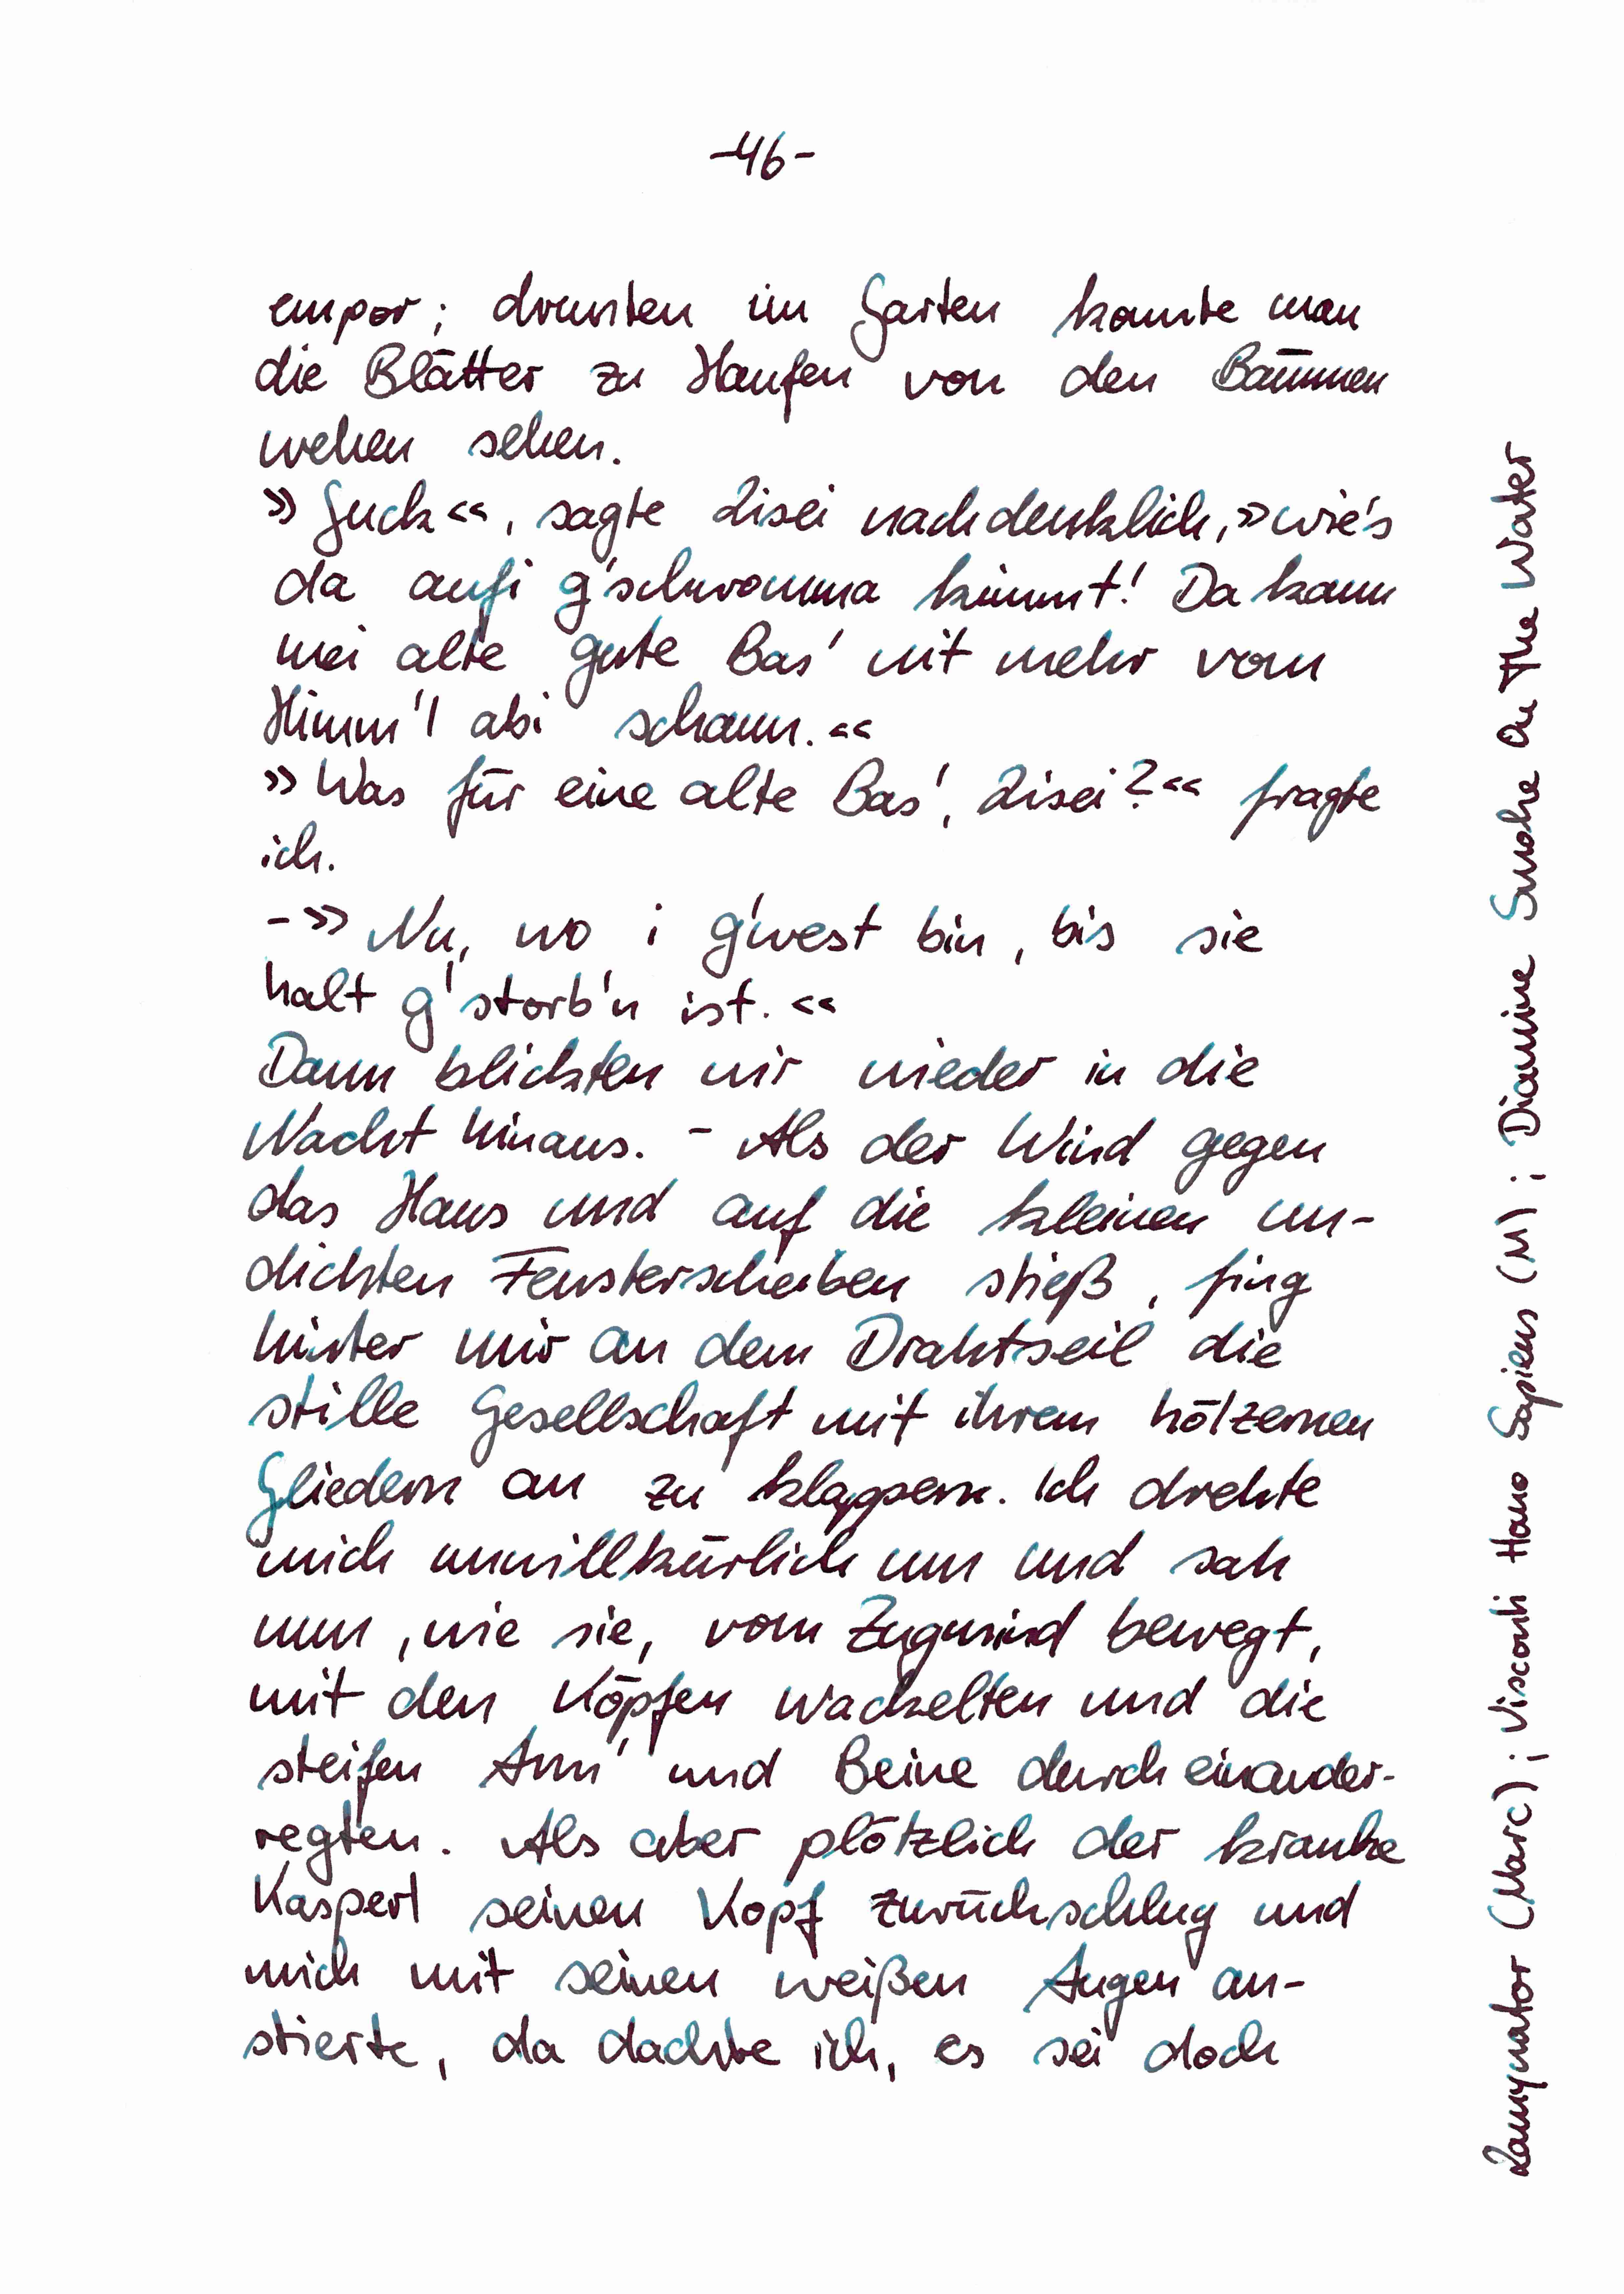 -46-
empor; drunten im Garten konnte man
die Blätter zu Haufen von den Bäumen
wehen sehen.
»Guck«, sagte Lisei nachdenklich, »wie's
da aufi g'schwomma kimmt! Da kann
mei alte gute Bas' nit mehr vom
Himm'l abi schaun.«
»Was für eine alte Bas', Lisei?« fragte
ich.
-»Nu, wo i g'west bin, bis sie
halt g'storb'n ist.«
Dann blickten wir wieder in die
Nacht hinaus. - Als der Wind gegen
das Haus und auf die kleinen un-
dichten Fensterscheiben stieß, fing
hinter mir an dem Drahtseil die
stille Gesellschaft mit ihren hölzernen
Gliedern an zu klappern. Ich drehte
mich unwillkürlich um und sah
nun, wie sie, vom Zugwind bewegt,
mit den Köpfen wackelten und die
steifen Arm' und Beine durcheinander-
regten. Als aber plötzlich der kranke
Kasperl seinen Kopf zurückschlug und
mich mit seinen weißen Augen an-
stierte, da dachte ich, es sei doch
Lamynator (Marc); Visconti Homo Sapiens (M); Diamine Smoke On The Water